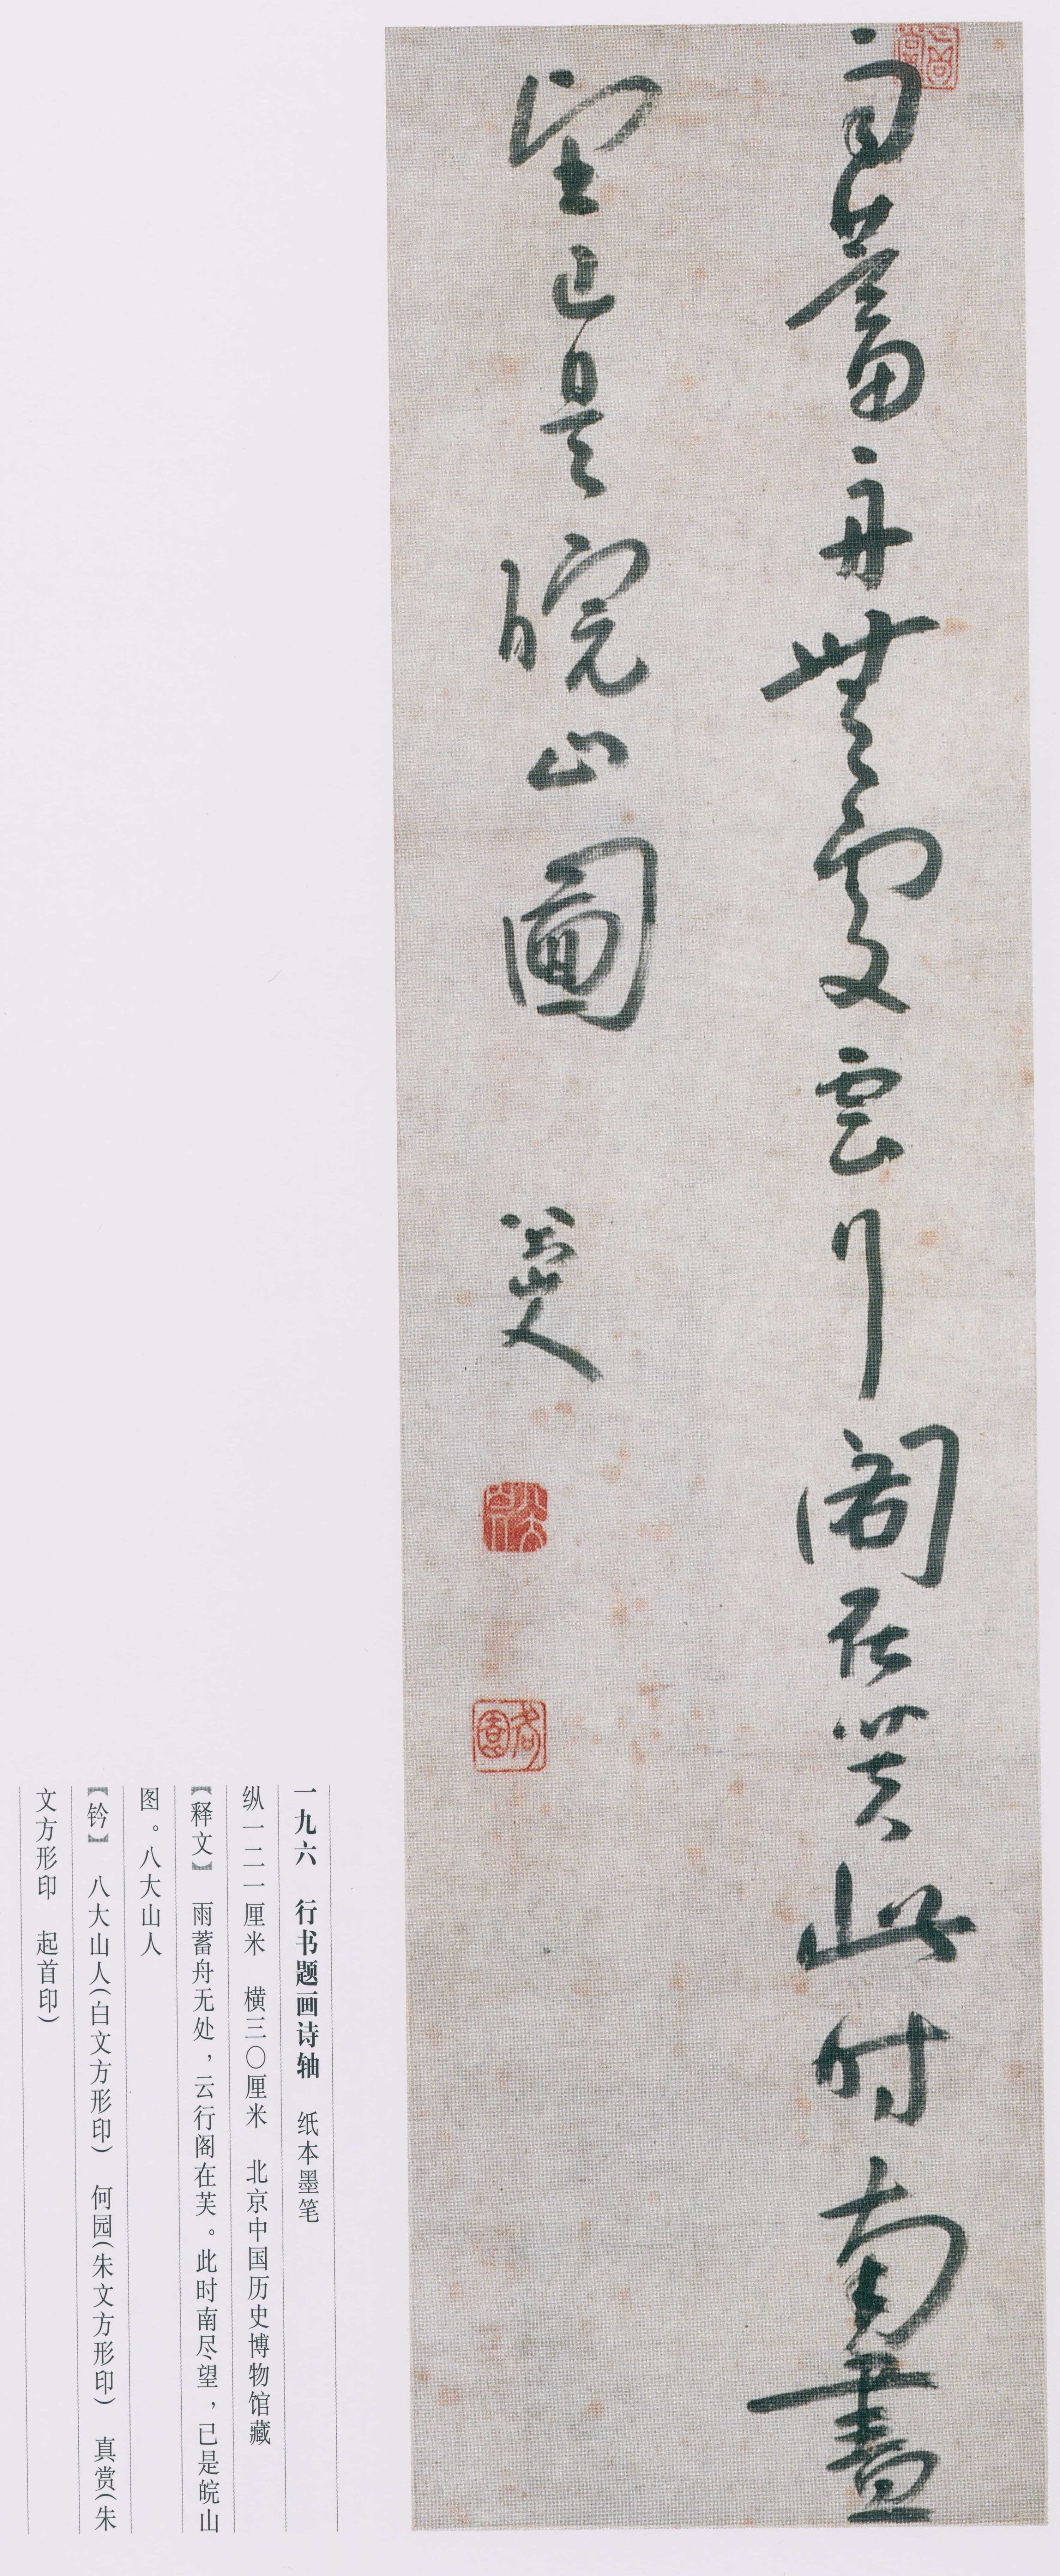 雨蓄舟無處雲行閣在芙此時南盡
望已是皖山圖
八大山人
八大山人
何園
一九六　行书题画诗轴　纸本墨笔
纵一二一厘米　横三〇厘米　北京中国历史博物馆藏
【释文】　雨蓄舟无处，云行阁在芙。此时南尽望，已是皖山
图。八大山人
【钤】　八大山人(白文方形印)　何园(朱文方形印)　真赏(朱
文方形印　起首印)